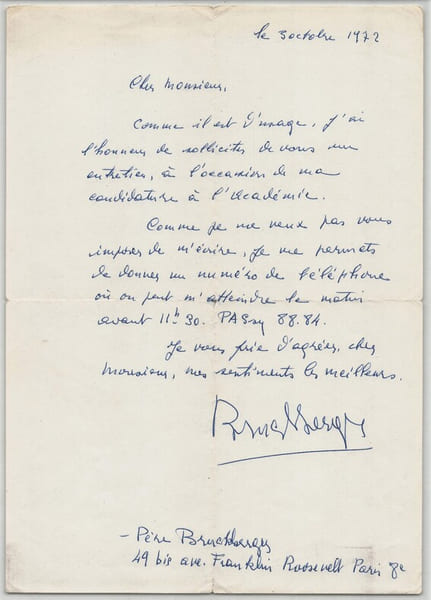 le 3 octobre 1972
Cher Monsieur,
Comme il est d'usage, j'ai
l'honneur de solliciter de vous un
entretien, à l'occasion de ma
candidature à l'Académie.
Comme je ne veux pas vous
imposer de m'écrire, je me permets
de donner un numéro de téléphone
où on peut m'atteindre le matin
avant 11h30. PASsy 88.84.
Je vous prie d'agréer, cher
Monsieur, mes sentiments les meilleurs.
Bruckberger
- Père Bruckberger
49 bis ave. Franklin Roosevelt Paris 8e